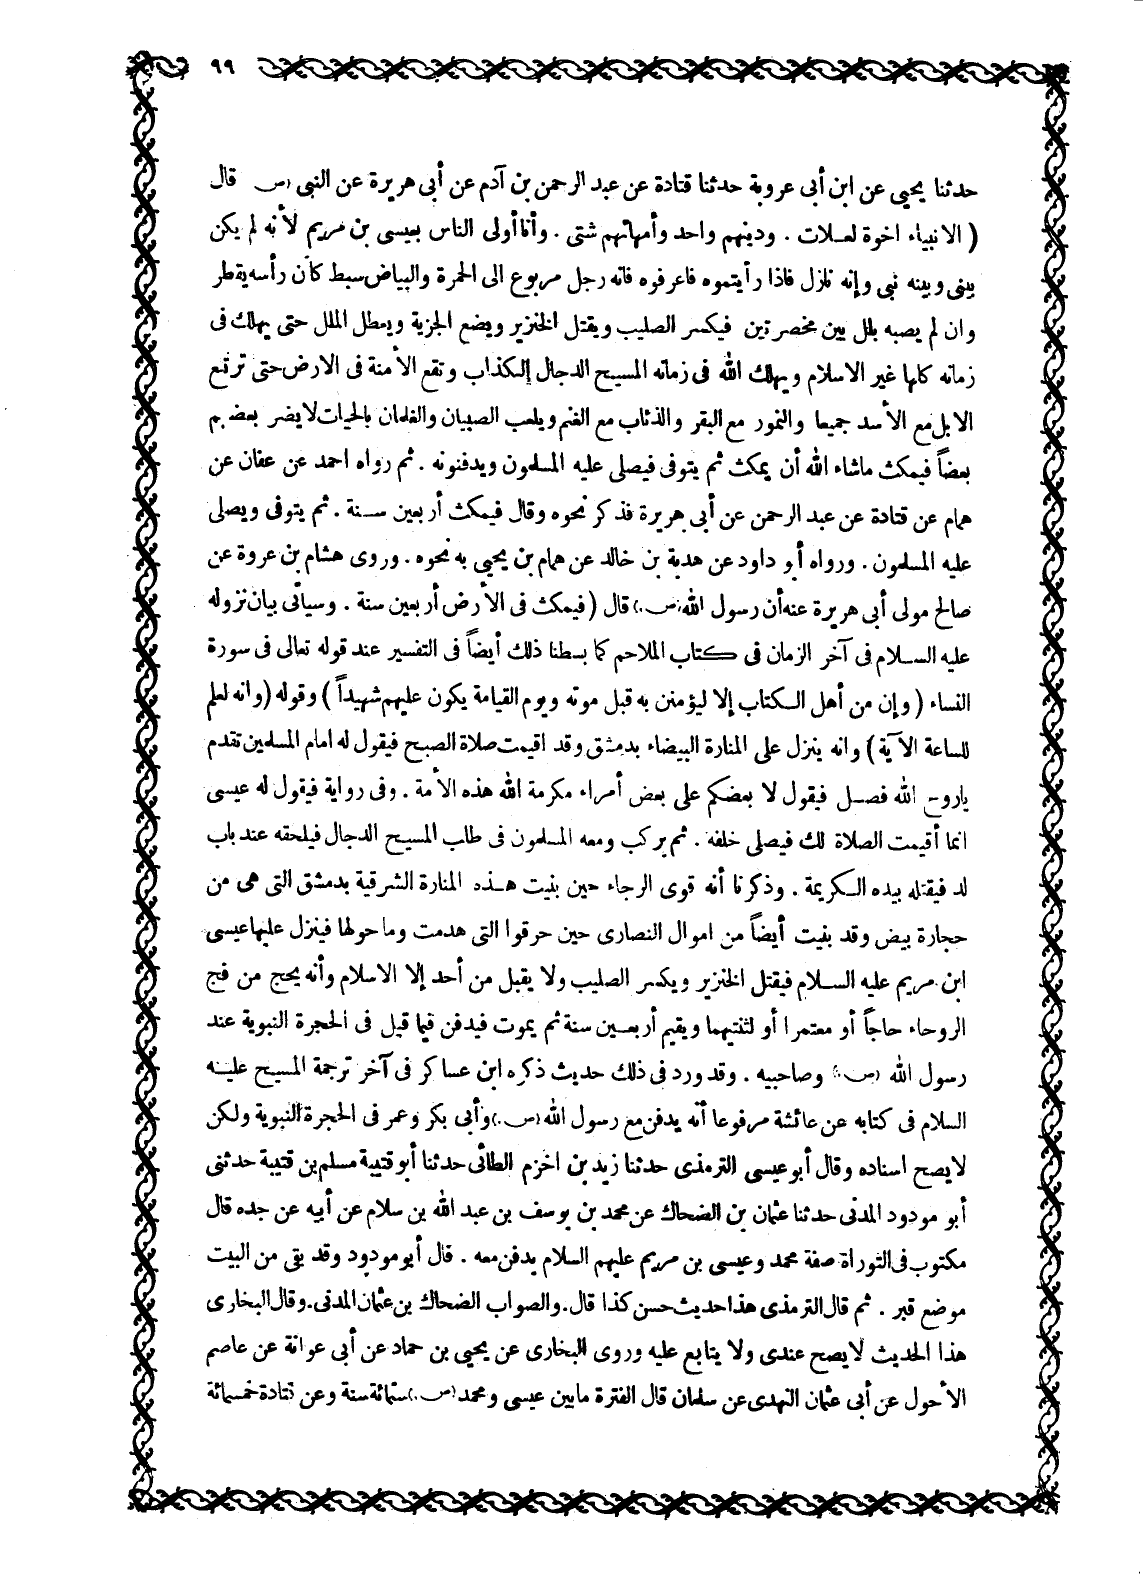 ٩٩
حدثنا يحيى عن ابن أبى عروبة حدثنا قتادة عن عبد الرحمن بن آدم عن أبى هريرة عن النبى (ص) قال
( الانبياء اخوة لعلات . ودينهم واحد وأمهاتهم شتى . وأنا أولى الناس بعيسى بن مريم لأنه لم يكن
بينى وبينه نبى وإنه نازل فاذا رأيتموه فاعرفوه فانه رجل مربوع الى الحمرة والبياض سبط كأن رأسه يقطر
وان لم يصبه بلل بين مخصرتين فيكسر الصليب ويقتل الخنزير ويضع الجزية ويعطل الملل حتى يهلك فى
زمانه كلها غير الاسلام ويهلك الله فى زمانه المسيح الدجال الكذاب وتقع الأمنة فى الارض حتى ترتع
الابل مع الأسد جميعا والنمور مع البقر والذئاب مع الغنم ويلعب الصبيان والغلمان بالحيات لا يضر بعضهم
بعضاً فيمكث ماشاء الله أن يمكث ثم يتوفى فيصلى عليه المسلمون ويدفنونه . ثم رواه احمد عن عفان عن
همام عن قتادة عن عبد الرحمن عن أبى هريرة فذكر نحوه وقال فيمكث أربعين سنة . ثم يتوفى ويصلى
عليه المسلمون . ورواه أبو داود عن هدبة بن خالد عن همام بن يحيى به نحوه . وروى هشام بن عروة عن
صالح مولى أبى هريرة عنه أن رسول الله (ص.) قال ( فيمكث فى الأرض أربعين سنة . وسيأتى بيان نزوله
عليه السلام فى آخر الزمان فى كتاب الملاحم كما بسطنا ذلك أيضاً فى التفسير عند قوله تعالى فى سورة
النساء ( وإن من أهل الكتاب إلا ليؤمنن به قبل موته ويوم القيامة يكون عليهم شهيداً ) وقوله ( وانه لعلم
للساعة الآية ) وانه ينزل على المنارة البيضاء بدمشق وقد اقيمت صلاة الصبح فيقول له امام المسلمين تقدم
ياروح الله فصل فيقول لا بعضكم على بعض أمراء مكرمة الله هذه الأمة . وفى رواية فيقول له عيسى
انما أقيمت الصلاة لك فيصلى خلفه . ثم يركب ومعه المسلمون فى طلب المسيح الدجال فيلحقه عند باب
لد فيقتله بيده الكريمة . وذكرنا أنه قوى الرجاء حين بنيت هذه المنارة الشرقية بدمشق التى هى من
حجارة بيض وقد بنيت أيضاً من اموال النصارى حين حرقوا التى هدمت وما حولها فينزل عليها عيسى
ابن مريم عليه السلام فيقتل الخنزير ويكسر الصليب ولا يقبل من أحد إلا الاسلام وأنه يحج من فج
الروحاء حاجاً أو معتمرا أو لثنتيهما ويقيم أربعين سنة ثم يموت فيدفن فيما قيل فى الحجرة النبوية عند
رسول الله (ص.) وصاحبيه . وقد ورد فى ذلك حديث ذكره ابن عساكر فى آخر ترجمة المسيح عليه
السلام فى كتابه عن عائشة مرفوعا أنه يدفن مع رسول الله (ص.) وأبى بكر وعمر فى الحجرة النبوية ولكن
لا يصح اسناده وقال أبو عيسى الترمذى حدثنا زيد بن اخزم الطائى حدثنا أبو قتيبة مسلم بن قتيبة حدثنى
أبو مودود المدنى حدثنا عثمان بن الضحاك عن محمد بن يوسف بن عبد الله بن سلام عن أبيه عن جده قال
مكتوب فى التوراة صفة محمد وعيسى بن مريم عليهم السلام يدفن معه . قال أبو مودود وقد بقى من البيت
موضع قبر . ثم قال الترمذى هذا حديث حسن كذا قال . والصواب الضحاك بن عثمان المدنى . وقال البخارى
هذا الحديث لا يصح عندى ولا يتابع عليه وروى البخارى عن يحيى بن حماد عن أبى عوانة عن عاصم
الأحول عن أبى عثمان النهدى عن سلمان قال الفترة مابين عيسى ومحمد (ص.) ستمائة سنة وعن قتادة خمسمائة